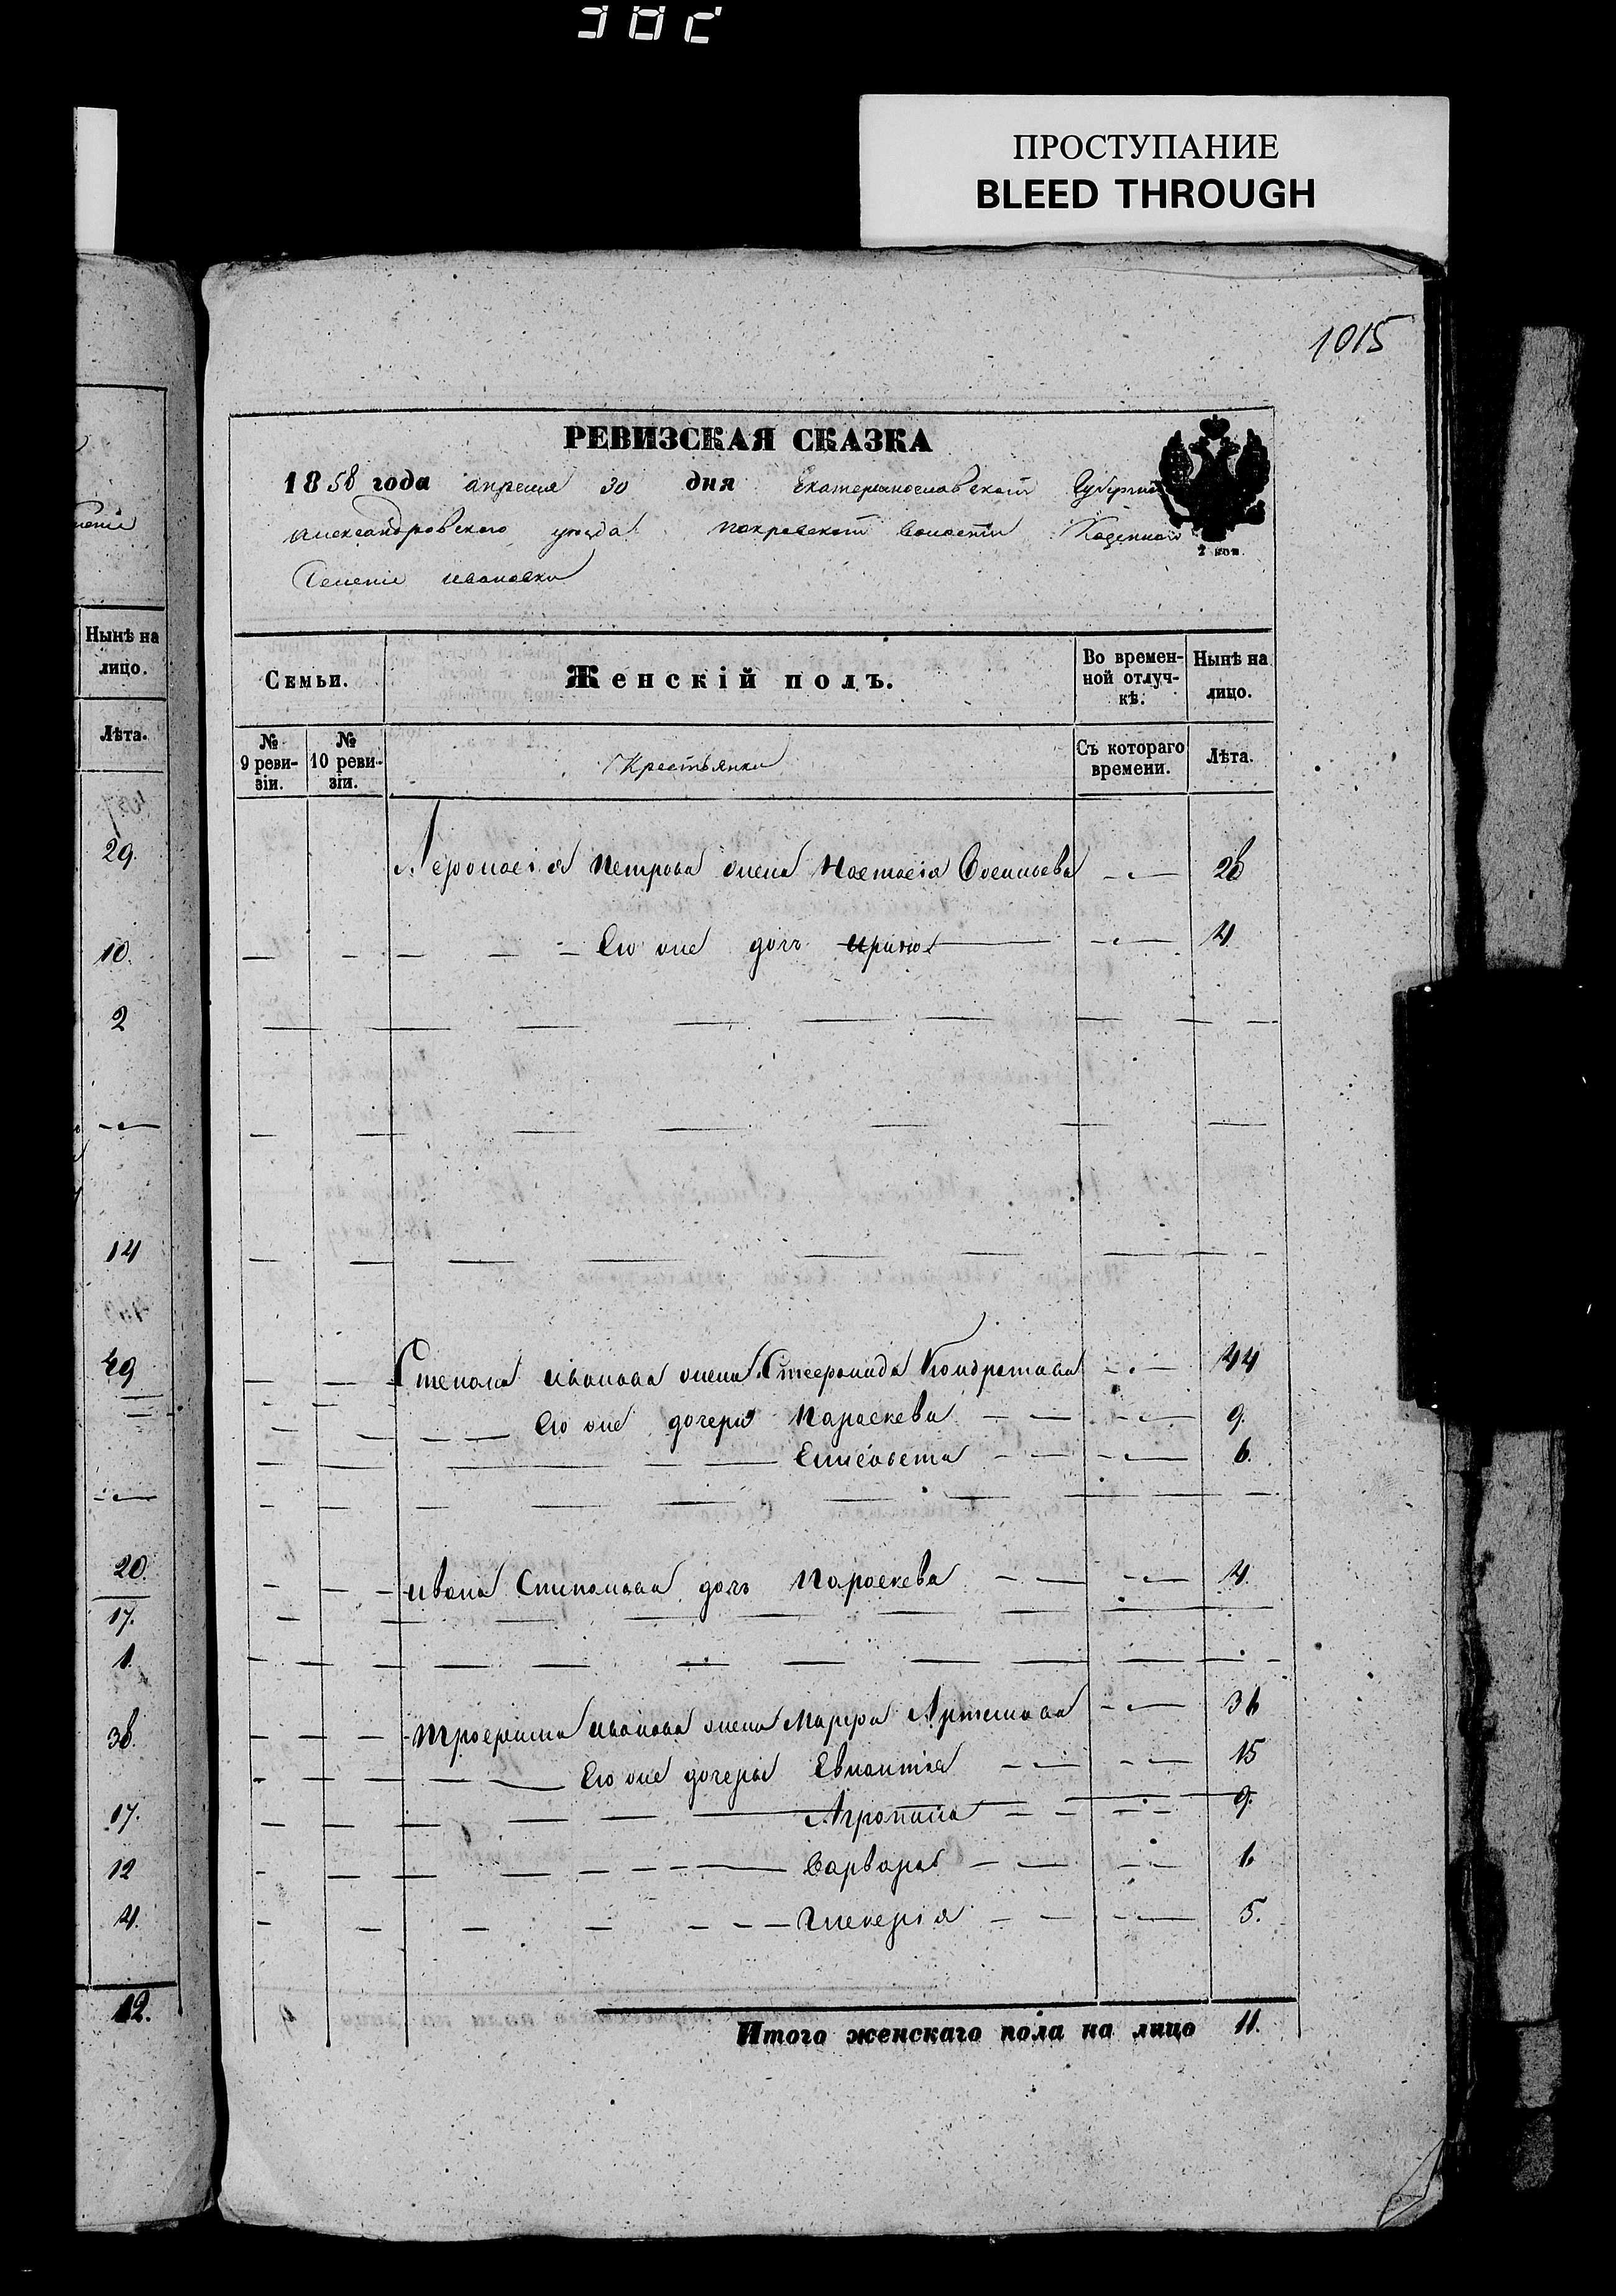 ПРОСТУПАНИЕ
BLEED THROUGH
1015
РЕВИЗСКАЯ СКАЗКА
1858 года апреля 30 дня Екатеринославской Губернии
Александровского уезда Покровской волости Казенного
Селения Ивановки
2 коп.
Нынѣ на лицо.
Лѣта.
29.
10.
2
14
49
20.
17.
1.
38.
17.
12
4.
12.
Семьи.
Женскій полъ.
Во времен-
ной отлуч-
кѣ.
Нынѣ на
лицо.
№
9 реви-
зіи.
№
10 реви-
зіи.
Крестьянки
Съ котораго
времени.
Лѣта.
Афонасія Петрова жена Настасія 26
Его же дочь Ирина 4
Степана Иванова жена Стефанида Кондратова 44
Его же дочери Параскева 9.
Елисавета 6.
Ивана Степанова дочь Параскева 4.
Трофима Иванова жена Марфа Артемова 36
Его же дочери 15
Агропина 9.
Варвара
Гликерія 5.
Итого женскаго пола на лицо 11.